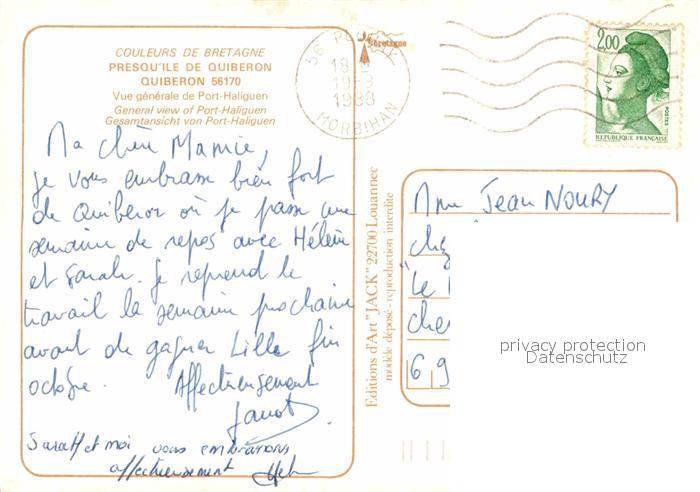 COULEURS DE BRETAGNE
PRESQU'ILE DE QUIBERON
QUIBERON 56170
Vue générale de Port-Haliguen
General view of Port-Haliguen
Gesamtansicht von Port-Haliguen
Bretagne
56
18
19-9
1988
MORBIHAN
2,00
POSTES
REPUBLIQUE FRANÇAISE
Ma chère Mamie,
je vous embrasse bien fort
de Quiberon où je passe une
semaine de repos avec Hélène
et Sarah. Je reprend le
travail la semaine prochaine
avant de gagner Lille fin
octobre. Affectueusement
Sarah et moi vous embrassons
affectueusement
Editions d'Art "JACK" 22700 Louannec
modèle déposé - reproduction interdite
Mme Jean NOURY
chez
"Le
che
69
privacy protection
Datenschutz